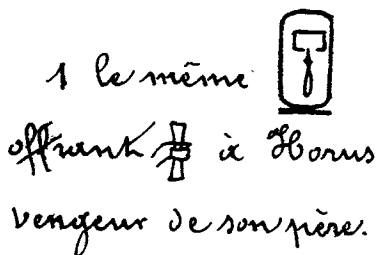 1 le même
offrant à Horus
vengeur de son père.